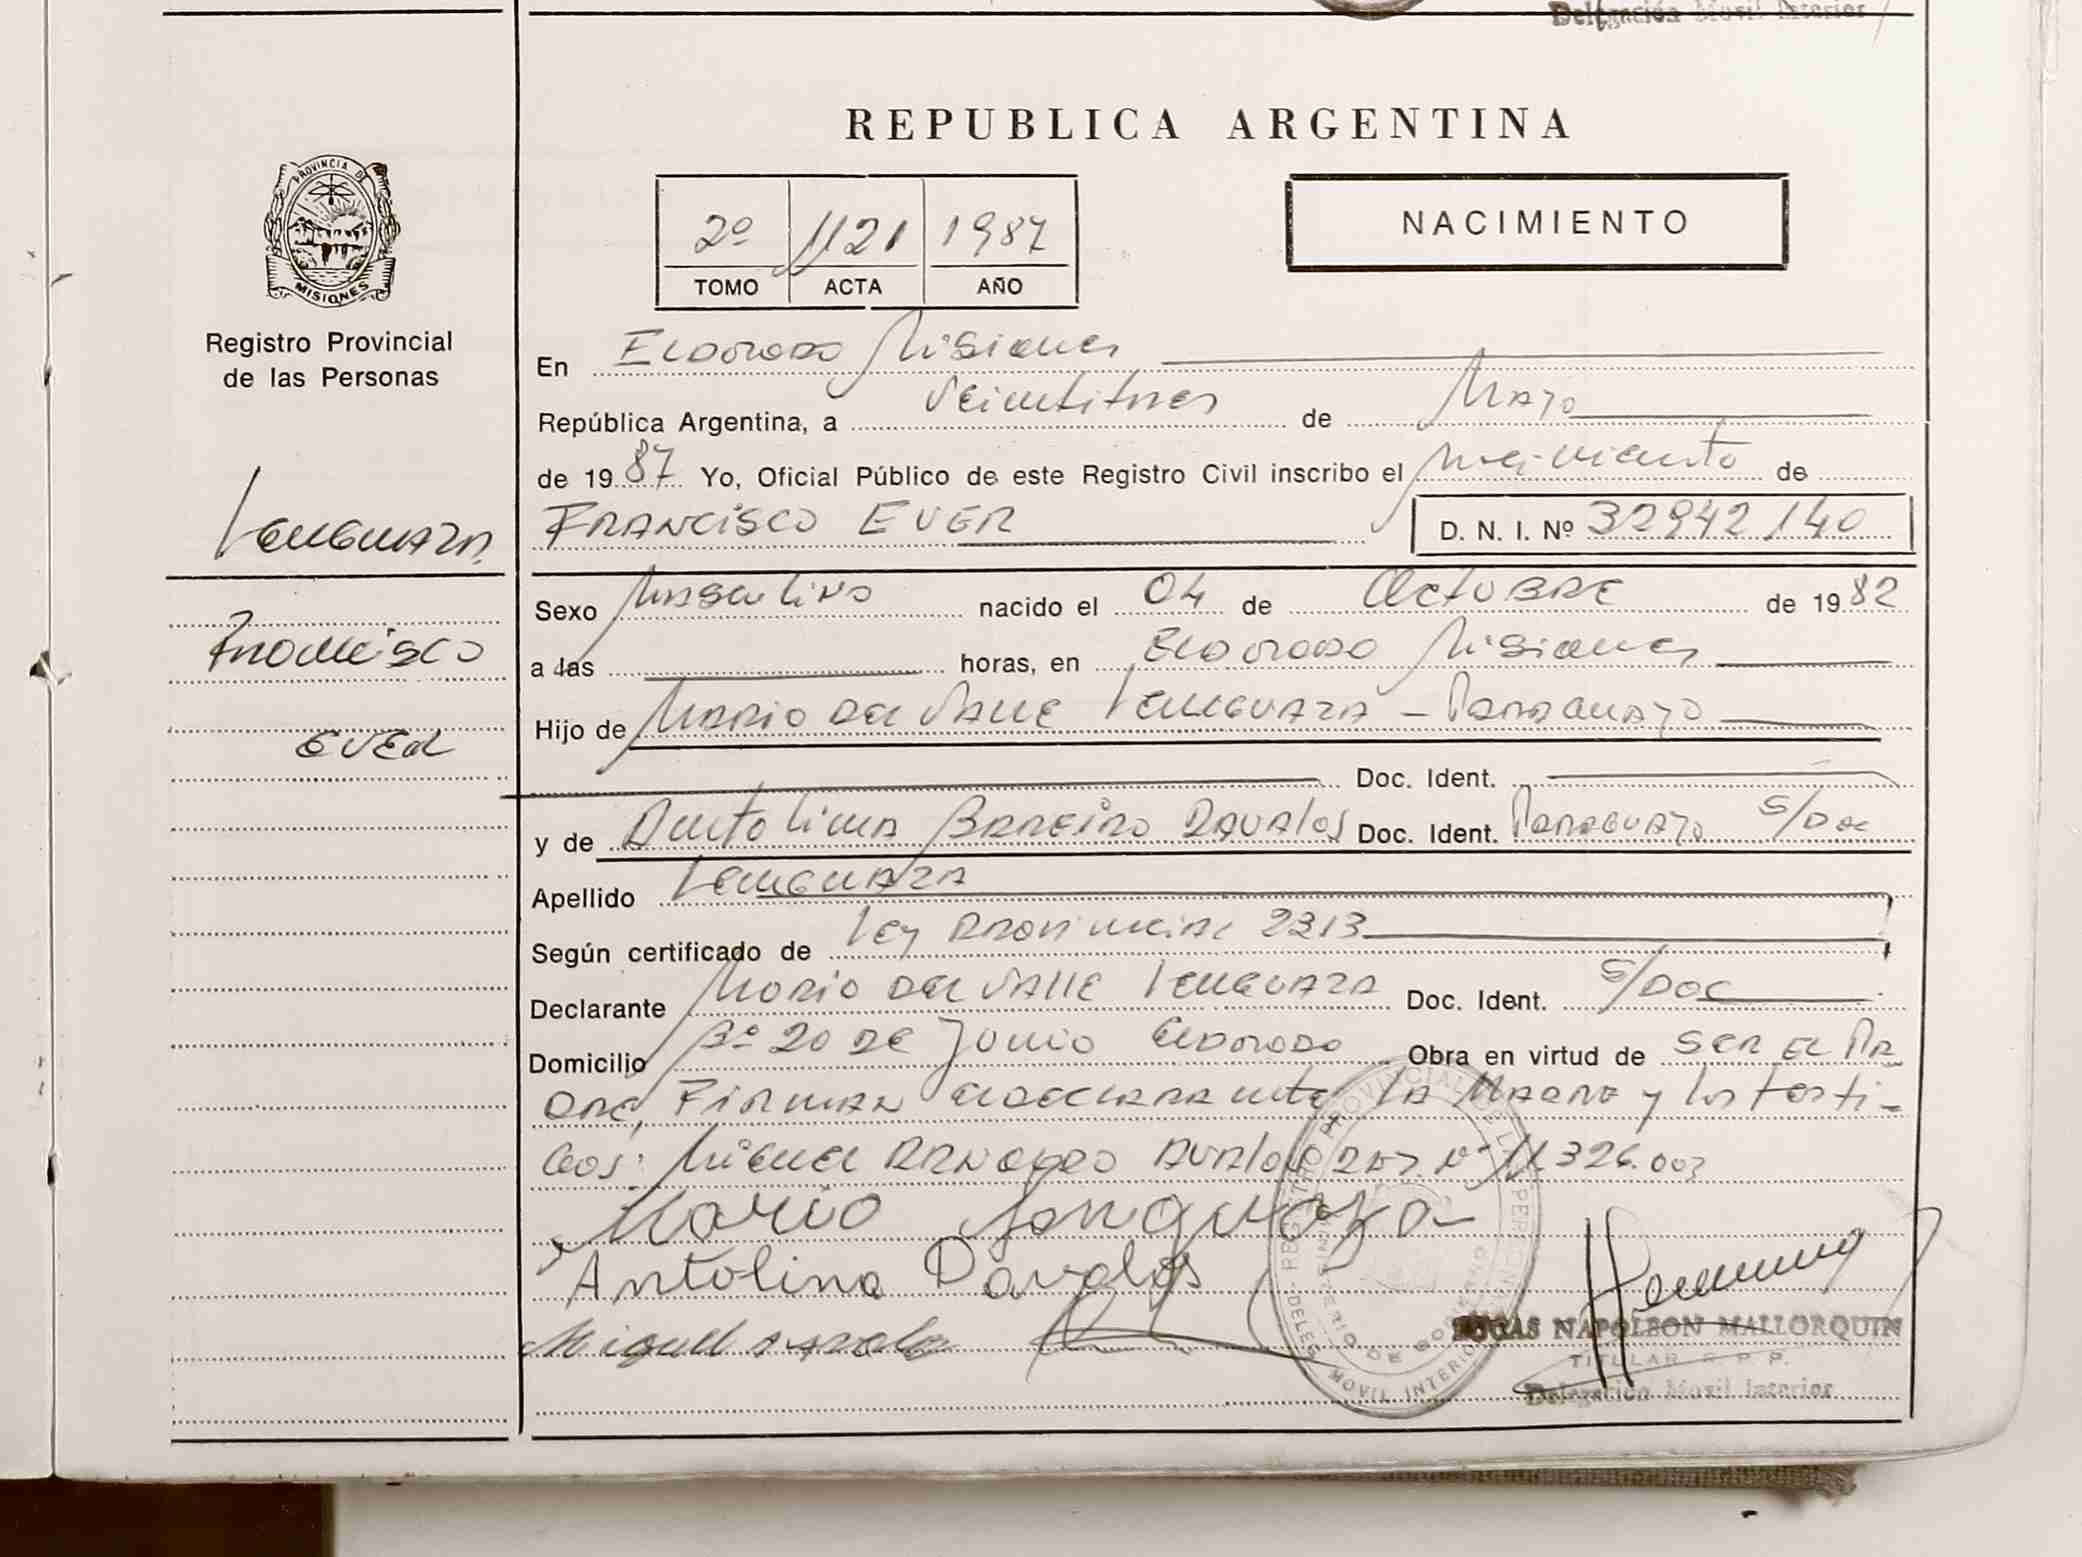 Delegación Movil Interior
REPUBLICA ARGENTINA
PROVINCIA DE
MISIONES
Registro Provincial
de las Personas
2º 1121 1987
TOMO ACTA AÑO
NACIMIENTO
En Eldorado Misiones
República Argentina, a Veintitres de Mayo
de 1987 Yo, Oficial Público de este Registro Civil inscribo el nacimiento de
Lenguaza FRANCISCO EVER D. N. I. Nº 32942140
Sexo Masculino nacido el 04 de Octubre de 1982
Francisco
a las horas, en Eldorado Misiones
Hijo de Mario del Valle Lenguaza - Paraguayo
EVER
Doc. Ident.
y de Antolina Barreiro Davalos Doc. Ident. Paraguaya S/Doc
Apellido Lenguaza
Según certificado de Ley Provincial 2313
Declarante Mario del Valle Lenguaza Doc. Ident. S/DOC
Domicilio Bº 20 de Junio Eldorado Obra en virtud de ser el Pa
dre, Firman el declarante, la Madre y los testi-
gos: Miguel Avalos N° 11.326.003
Mario Lenguaza
Antolina Davalos
Miguel Avalos
REGISTRO PROVINCIAL DE LAS PERSONAS
MINISTERIO DE GOBIERNO
DELEG. MOVIL INTERIOR
NAPOLEON MALLORQUIN
TITULAR R. P. P.
Delegación Movil Interior